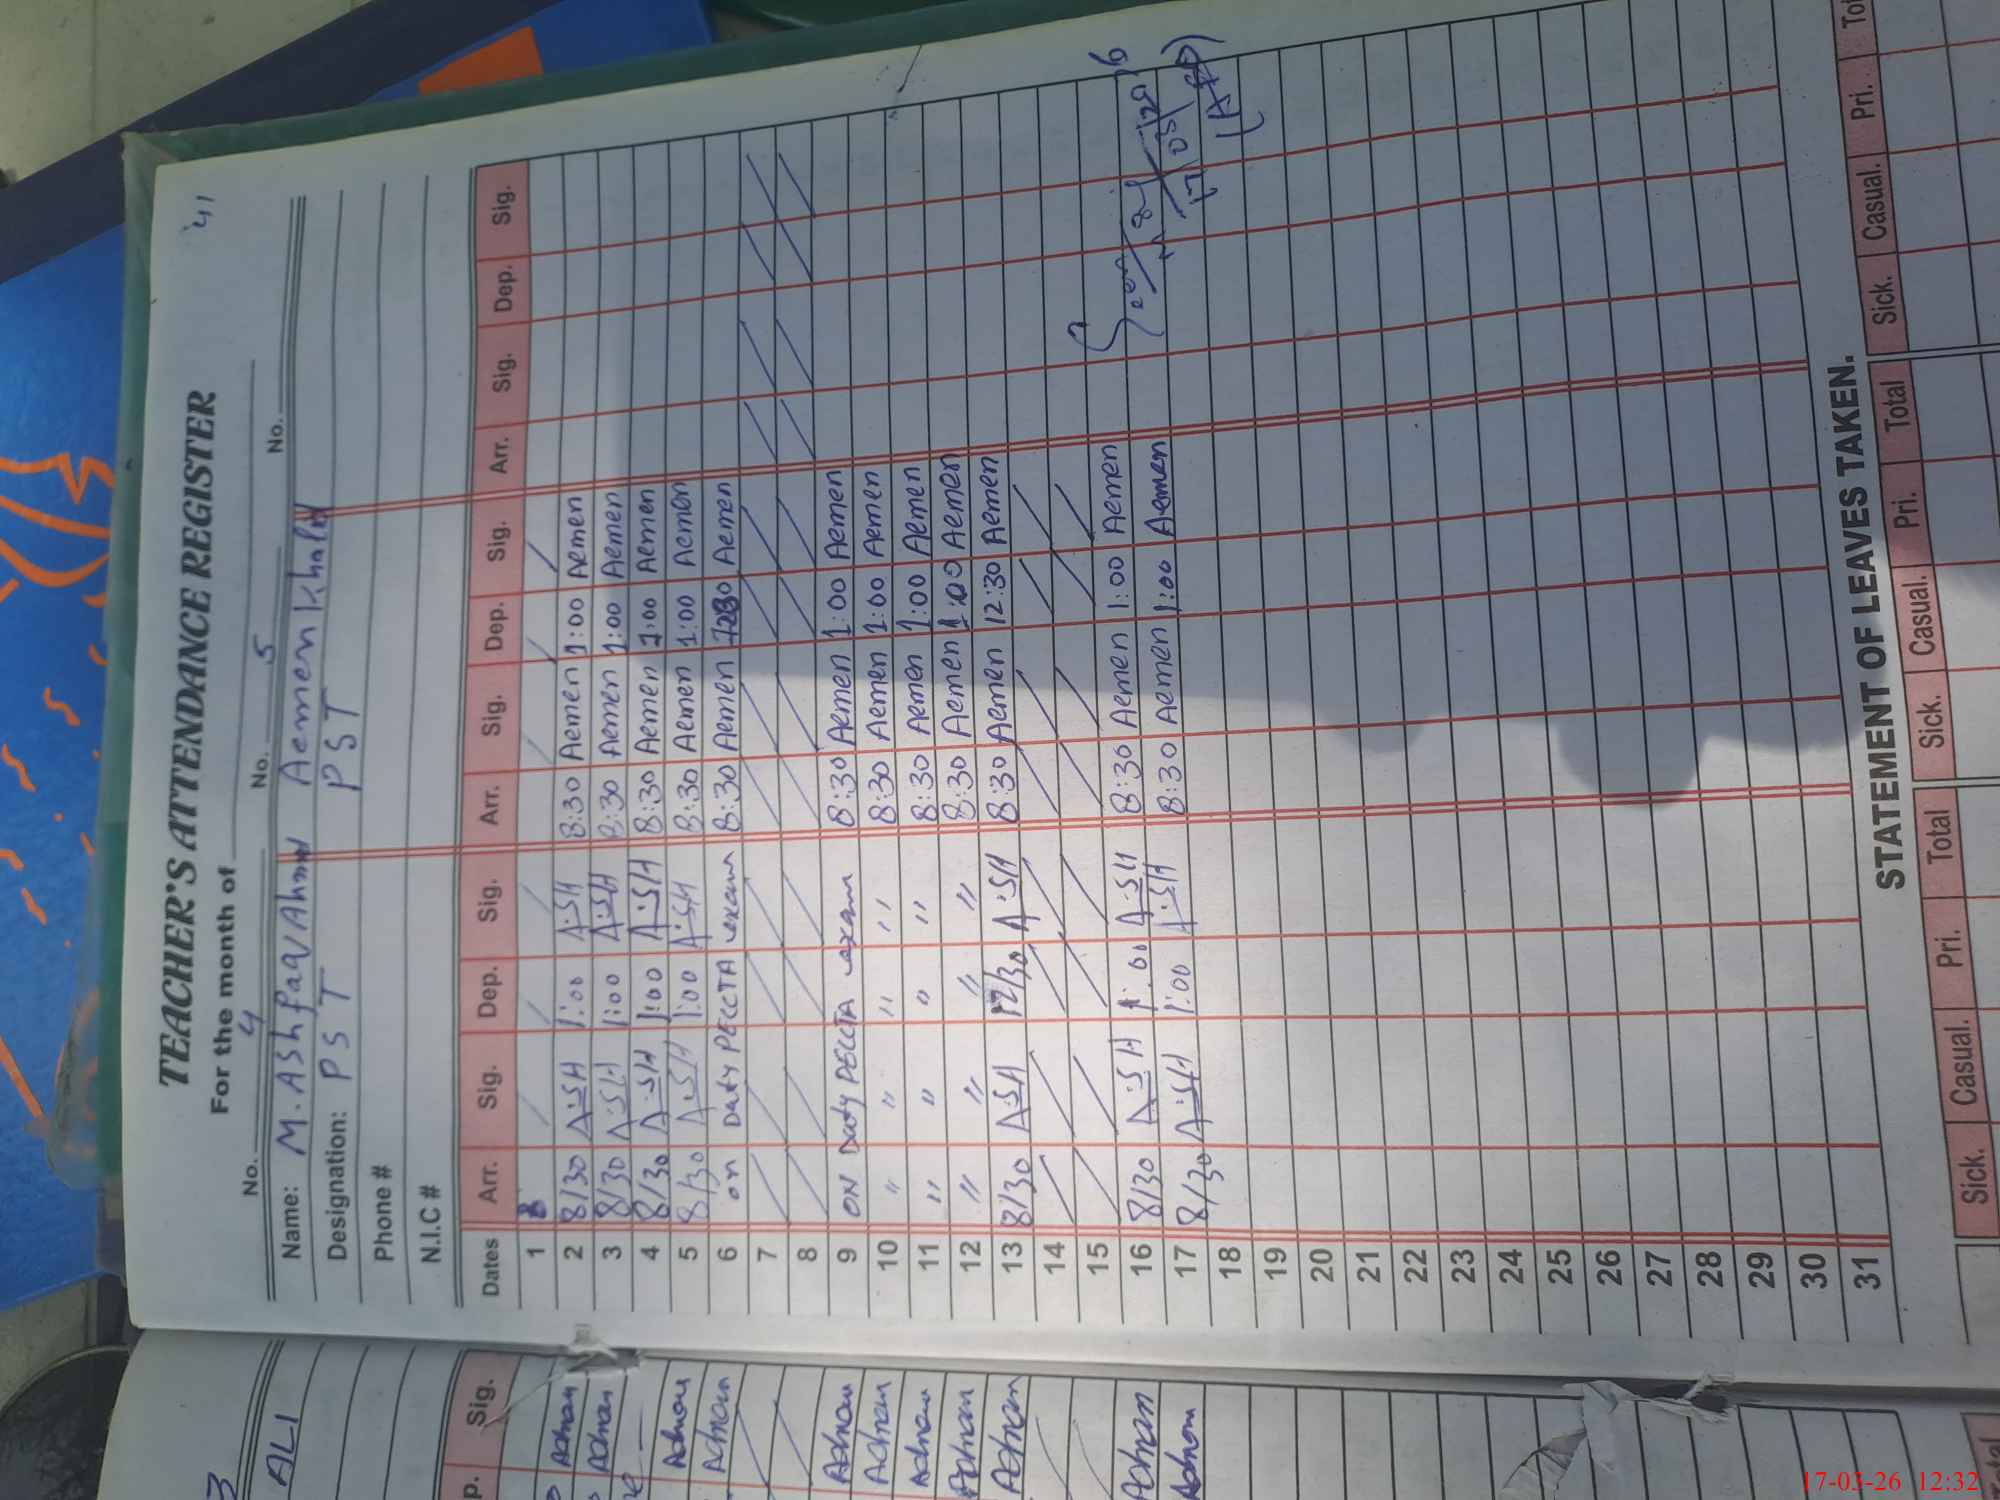 41
TEACHER'S ATTENDANCE REGISTER
For the month of
No. 4 No. 5 No.
Name: M. Ashfaq Ahmad Aemen Khalid
Designation: PST PST
Phone #
N.I.C #
Dates Arr. Sig. Dep. Sig. Arr. Sig. Dep. Sig. Arr. Sig. Dep. Sig.
1
2 8/30 A.SH 1:00 A.SH 8:30 Aemen 1:00 Aemen
3 8/30 A.SH 1:00 A.SH 8:30 Aemen 1:00 Aemen
4 8/30 A.SH 1:00 A.SH 8:30 Aemen 1:00 Aemen
5 8/30 A.SH 1:00 A.SH 8:30 Aemen 1:00 Aemen
6 on Duty PECCTA exam 8:30 Aemen Aemen
7
8
9 ON Duty PECCTA exam 8:30 Aemen 1:00 Aemen
10 " " " " 8:30 Aemen 1:00 Aemen
11 " " " " 8:30 Aemen 1:00 Aemen
12 " " " " 8:30 Aemen 1:00 Aemen
13 8/30 A.SH 12/30 A.SH 8:30 Aemen 12:30 Aemen
14
15
16 8/30 A.SH 1:00 A.SH 8:30 Aemen 1:00 Aemen
17 8/30 A.SH 1:00 A.SH 8:30 Aemen 1:00 Aemen
17/03/2026
18
19
20
21
22
23
24
25
26
27
28
29
30
31
STATEMENT OF LEAVES TAKEN.
Sick. Casual. Pri. Total Sick. Casual. Pri. Total Sick. Casual. Pri. Tot
3
ALI
p. Sig.
Adnan
Adnan
Adnan
Adnan
Adnan
Adnan
Adnan
Adnan
Adnan
Adnan
Adnan
17-03-26 12:32